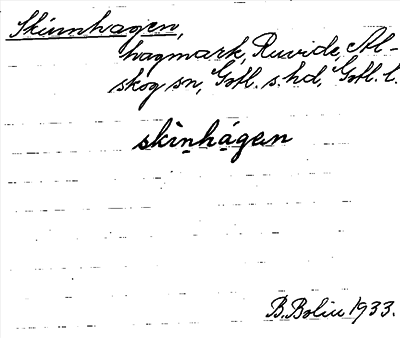 Skinnhagen,
hagmark, Ruvide, Al-
skog sn, Gotl. s. hd, Gotl. l.
skìnhá̀gen
B. Bolin 1933.